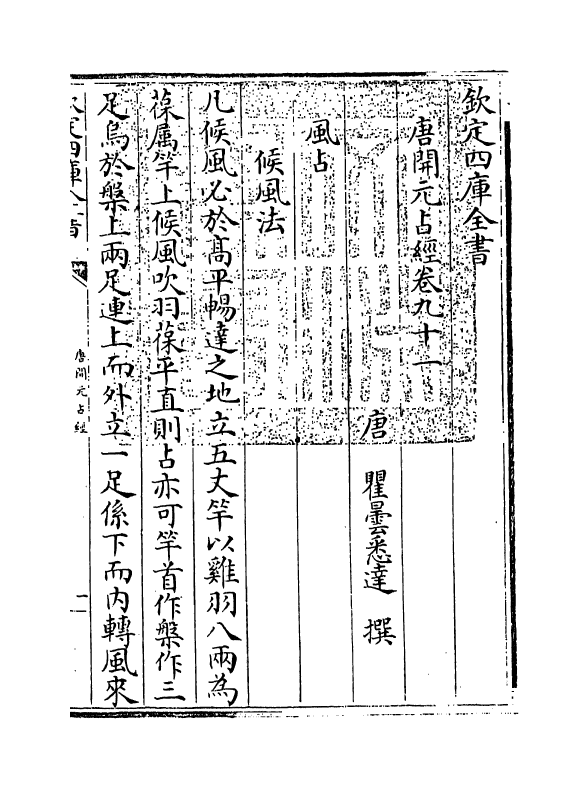 欽定四庫全書
唐開元占經卷九十一
唐 瞿曇悉達 撰
風占
候風法
凡候風必於髙平暢達之地立五丈竿以雞羽八兩為
葆属竿上候風吹羽葆平直則占亦可竿首作盤作三
足烏於盤上兩足連上而外立一足係下而内轉風來
唐開元占經